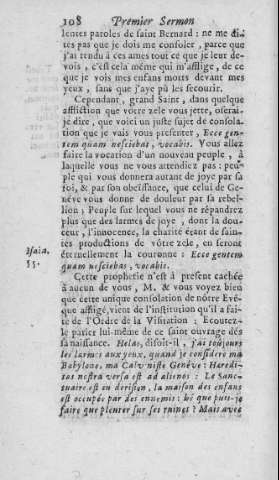 108 Premier Sermon
lentes paroles de saint Bernard : ne me di-
tes pas que je dois me consoler, parce que
j'ai rendu à ces ames tout ce que je leur de-
vois, c'est cela même qui m'afflige, de ce
que je vois mes enfans morts devant mes
yeux, sans que j'aye pû les secourir.
Cependant, grand Saint, dans quelque
affliction que votre zele vous jette, oserai-
je dire, que voici un juste sujet de consola-
tion que je vais vous presenter, Ecce gen-
tem quam nesciebas, vocabis. Vous allez
faire la vocation d'un nouveau peuple, à
laquelle vous ne vous attendiez pas : peu-
ple qui vous donnera autant de joye par sa
foi, & par son obeïssance, que celui de Ge-
néve vous donne de douleur par sa rebel-
lion ; Peuple sur lequel vous ne répandrez
plus que des larmes de joye, dont la dou-
ceur, l'innocence, la charité étant de sain-
tes productions de vôtre zele, en seront
éternellement la couronne : Ecce gentem
quam nesciebas, vocabis.
Isaïa.
55.
Cette prophetie n'est à present cachée
à aucun de vous, M. & vous voyez bien
que cette unique consolation de nôtre Evê-
que affligé, vient de l'institution qu'il a fai-
te de l'Ordre de la Visitation : Ecoutez-
le parler lui-même de ce saint ouvrage dès
sa naissance. Helas, disoit-il, j'ai toujours
les larmes aux yeux, quand je considere ma
Babylone, ma Calviniste Genêve : Heredi-
tas nostra versa est ad alienos : Le Sanc-
tuaire est en derision, la maison des enfans
est occupée par des ennemis : hé que puis-je
faire que pleurer sur ses ruines ? Mais avec